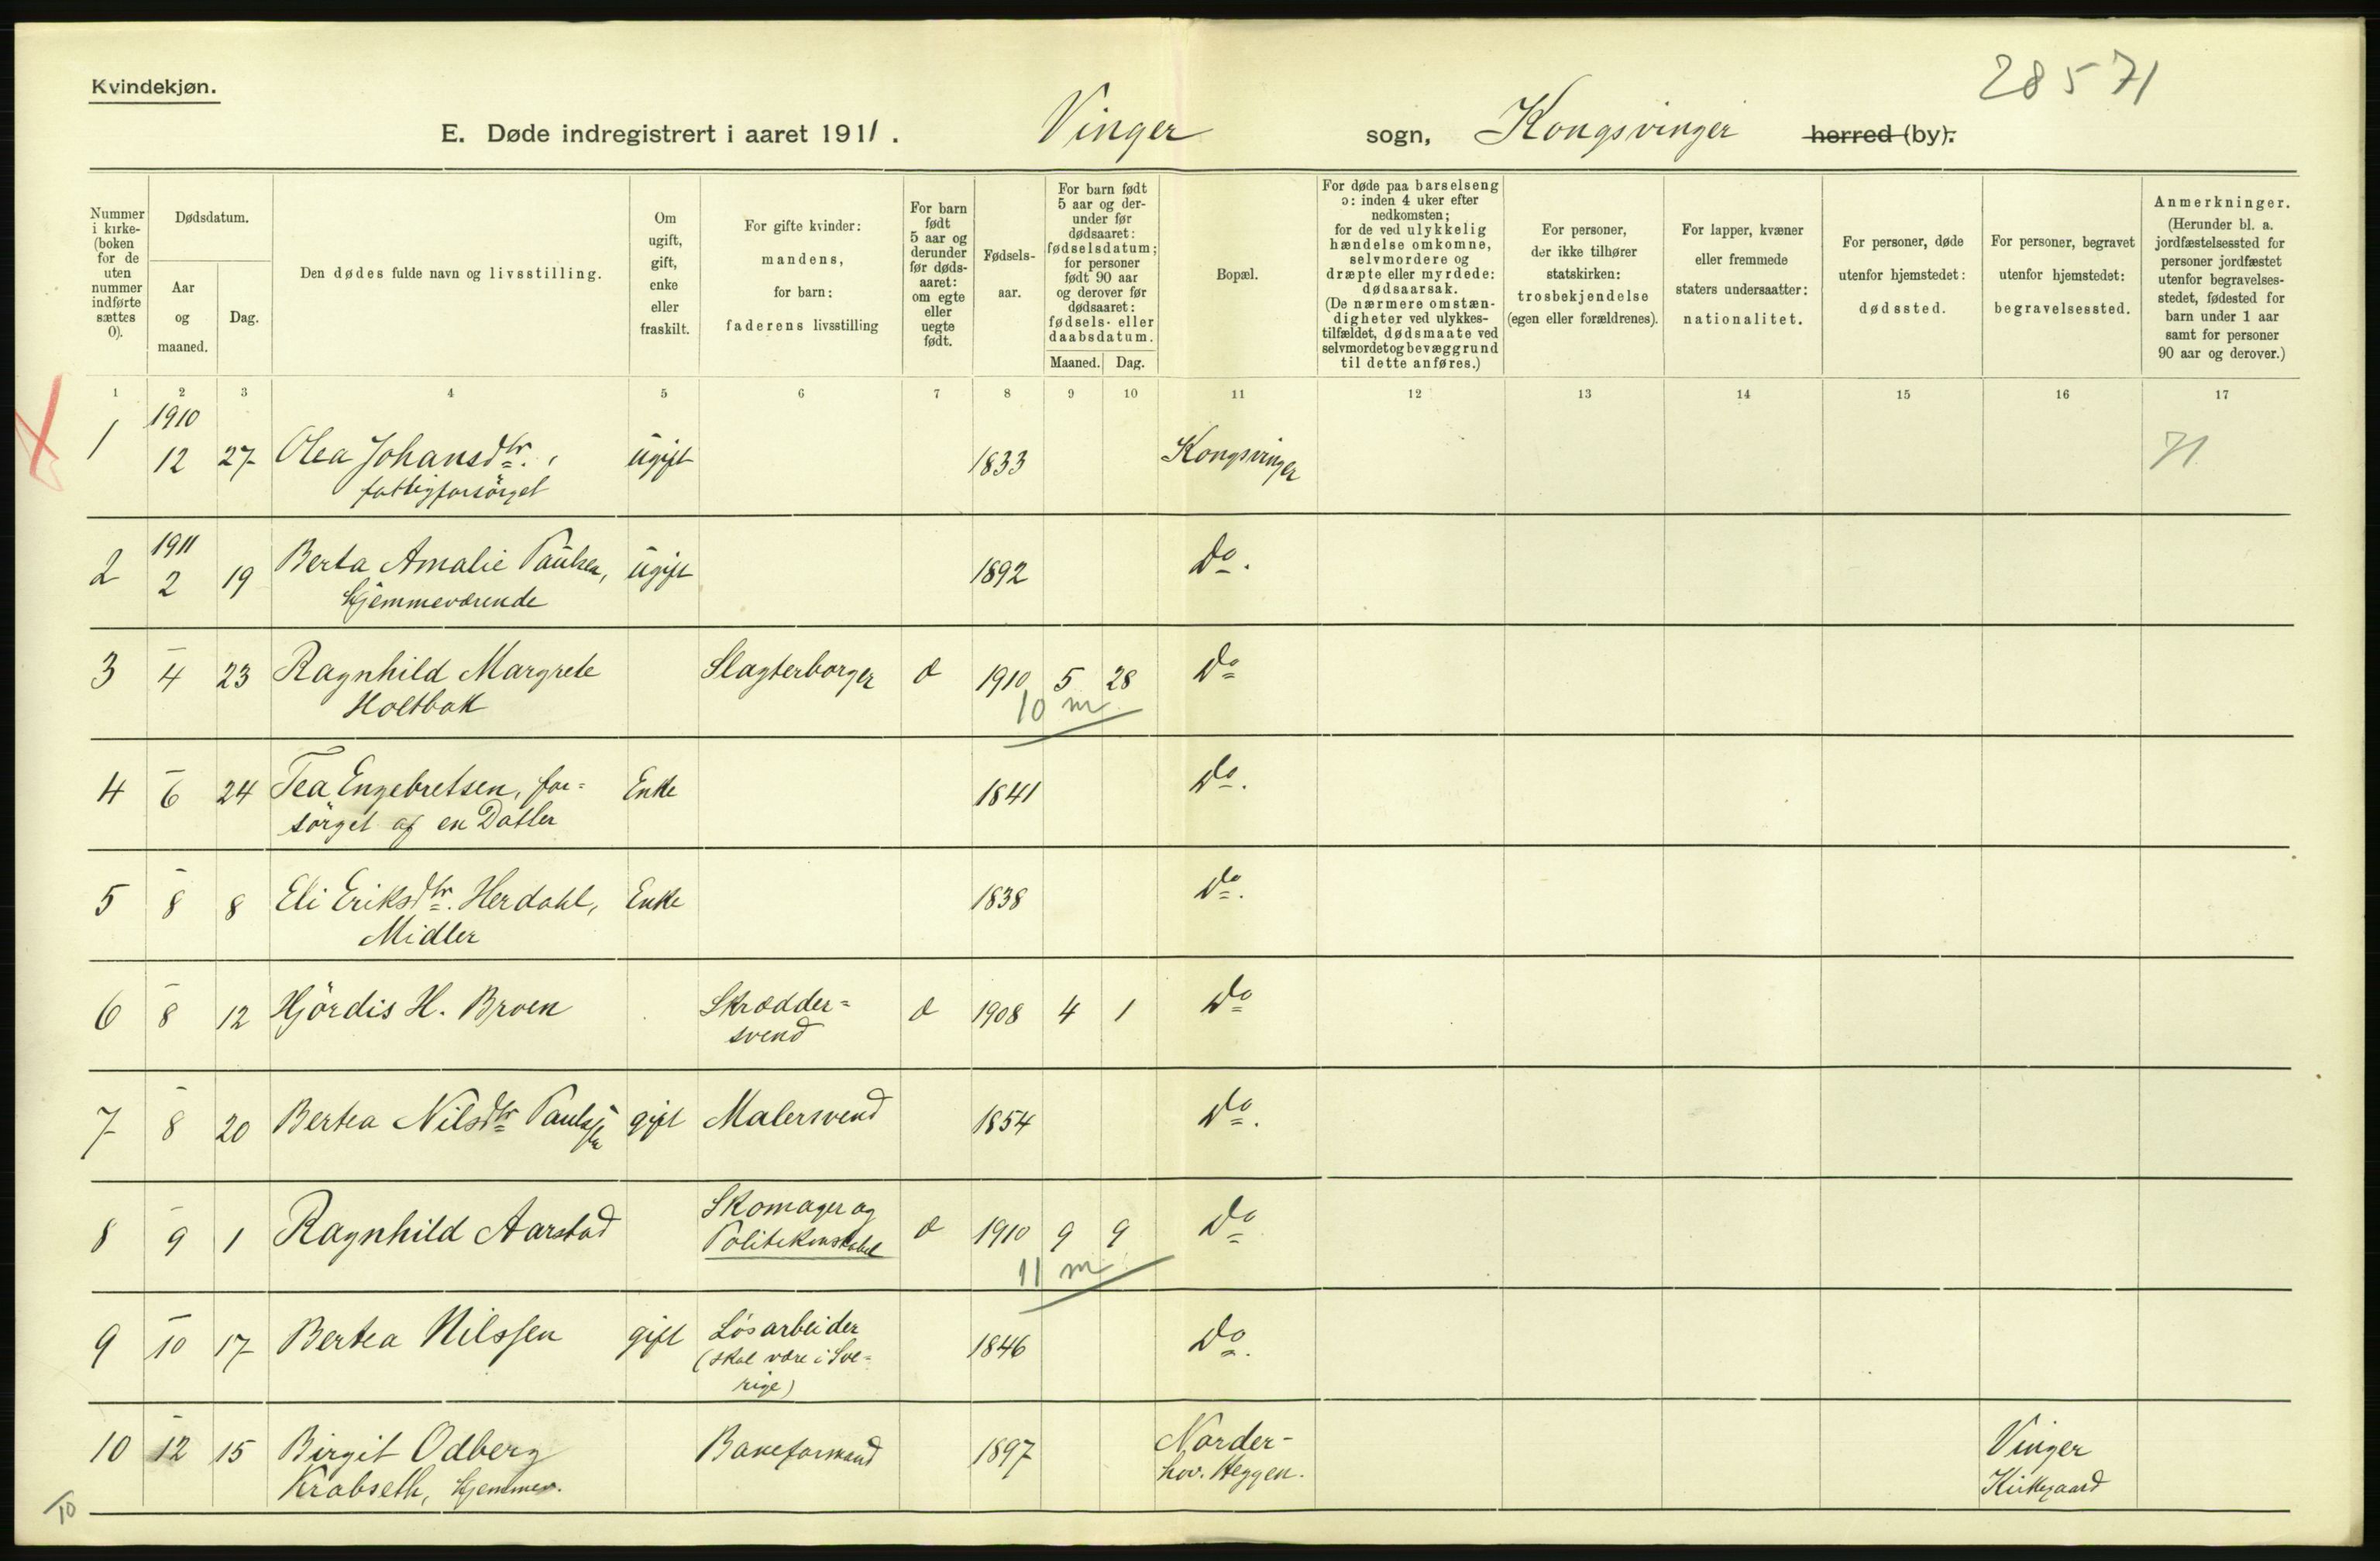 28571
Kvindekjøn.
E. Døde indregistrert i aaret 1911. Vinger sogn, Kongsvinger herred (by).
Nummer i kirke-(boken for de uten nummer indførte sættes 0).
Dødsdatum.
Aar og maaned.
Dag.
Den dødes fulde navn og livsstilling.
Om ugift, gift, enke eller fraskilt.
For gifte kvinder: mandens, for barn: faderens livsstilling
For barn født 5 aar og derunder før døds-aaret: om egte eller uegte født.
Fødsels-aar.
For barn født 5 aar og der-under før dødsaaret: fødselsdatum; for personer født 90 aar og derover før dødsaaret: fødsels- eller daabsdatum.
Maaned. Dag.
Bopæl.
For døde paa barselseng ɔ: inden 4 uker efter nedkomsten; for de ved ulykkelig hændelse omkomne, selvmordere og dræpte eller myrdede: dødsaarsak. (De nærmere omstæn-digheter ved ulykkes-tilfældet, dødsmaate ved selvmordet og bevæggrund til dette anføres.)
For personer, der ikke tilhører statskirken: trosbekjendelse (egen eller forældrenes).
For lapper, kvæner eller fremmede staters undersaatter: nationalitet.
For personer, døde utenfor hjemstedet: dødssted.
For personer, begravet utenfor hjemstedet: begravelsessted.
Anmerkninger. (Herunder bl. a. jordfæstelsessted for personer jordfæstet utenfor begravelses-stedet, fødested for barn under 1 aar samt for personer 90 aar og derover.)
1 2 3 4 5 6 7 8 9 10 11 12 13 14 15 16 17
1910
1 12 27 Olea Johansdtr., ugift 1833 Kongsvinger 71
fattigforsörget
1911
2 2 19 Berta Amalie Paulsen, ugift 1892 Do.
hjemmeværende
3 - 4 23 Ragnhild Margrete Slagterborger æ 1910 5 28 Do
Holtbak 10 m
4 - 6 24 Tea Engebretsen, for= Enke 1841 Do.
sörget af en Datter
5 - 8 8 Eli Eriksdtr. Herdahl, Enke 1838 Do.
Midler
6 - 8 12 Hjördis H. Broen Skrædder= æ 1908 4 1 Do
svend
7 - 8 20 Bertea Nilsdtr Paulsen gift Malersvend 1854 Do.
8 - 9 1 Ragnhild Aarstad Skomager og æ 1910 9 9 Do
Politikonstabel 11 m
9 - 10 17 Bertea Nilssen gift Lösarbeider 1846 Do.
(skal være i Sve=
rige)
10 - 12 15 Birgit Odberg Baneformand 1897 Norder- Vinger
Krabseth, hjemmev. hov. Heggen. Kirkegaard
10